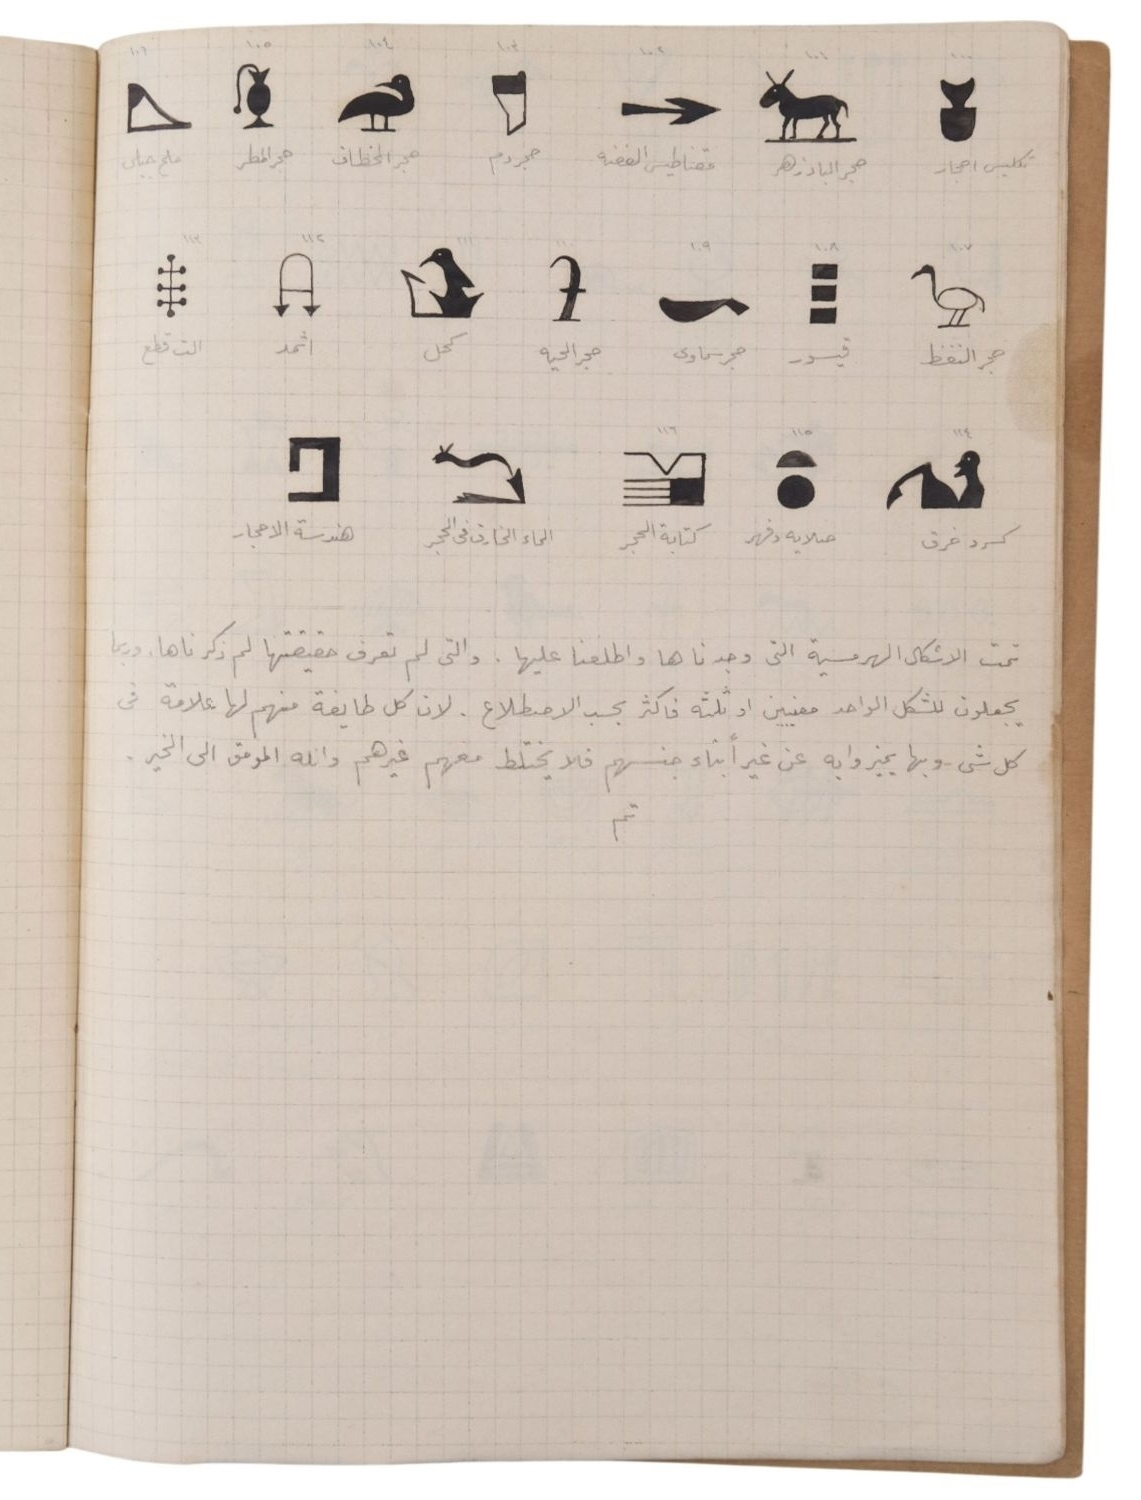 ١٠٠ ١٠١ ١٠٢ ١٠٣ ١٠٤ ١٠٥ ١٠٦
تكليس احجار حجر الباذزهر مقناطيس الفضه حجر دم حجر الخطاف حجر المطر ملح جبلى
١٠٧ ١٠٨ ١٠٩ ١١٠ ١١١ ١١٢ ١١٣
حجر النفظ قيسور حجر سماوى حجر الحيه كحل اثمد الت قطع
١١٤ ١١٥ ١١٦
كسرد خرق صلايه وفهر كتابة الحجر الماء الخارق فى الحجر هندسة الاحجار
تمت الاشكال الهرمسية التى وجدناها واطلعنا عليها . والتى لم تعرف حقيقتها لم ذكرناها. وربما
يجعلون للشكل الواحد معنيين او ثلثه فاكثر بحسب الاصطلاع . لان كل طايفة منهم لها علامة فى
كل شى وبها يميزوا به عن غير أبناء جنسهم فلا يختلط معهم غيرهم والله الموفق الى الخير .
تم